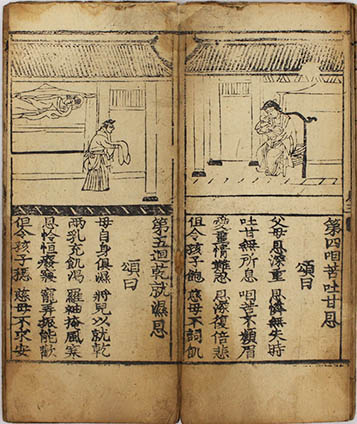 第四咽苦吐甘恩
頌曰
父母恩深重 恩憐無失時
吐甘無所息 咽苦不顰眉
愛重情難忍 恩深復倍悲
但令孩子飽 慈母不詞飢
第五迴乾就濕恩
頌曰
母自身俱濕 將兒以就乾
兩乳充飢渴 羅袖掩風寒
恩怜恒癈寢 寵弄振能歡
但令孩子穩 慈母不求安